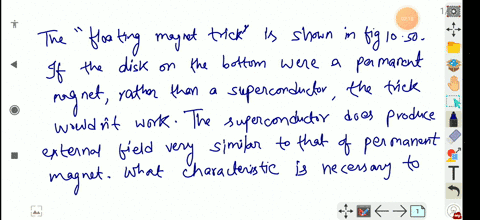 The "floating magnet trick" is shown in fig 10.50.
If the disk on the bottom were a parmanent
magnet, rather than a superconductor, the trick
wouldn't work. The superconductor does produce
external field very similar to that of permanent
magnet. What characteristic is necessary to